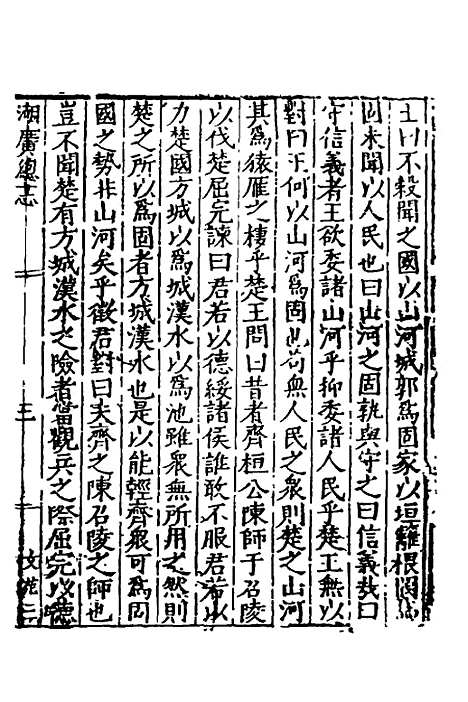 王曰不穀聞之國以山河城郭爲固家以垣籬根闑爲
固未聞以人民也曰山河之固孰與守之曰信義哉曰
守信義者王欲委諸山河乎抑委諸人民乎楚王無以
對曰王何以山河爲固也苟無人民之衆則楚之山河
其爲猿雁之棲乎楚王問曰昔者齊桓公陳師于召陵
以伐楚屈完諫曰君若以德綏諸侯誰敢不服君若以
力楚國方城以爲城漢水以爲池雖衆無所用之然則
楚之所以爲固者方城漢水也是以能輕齊衆可爲固
國之勢非山河矣乎徵君對曰夫齊之陳召陵之師也
豈不聞楚有方城漢水之險者當觀兵之際屈完以德
湖廣總志 三 文苑二